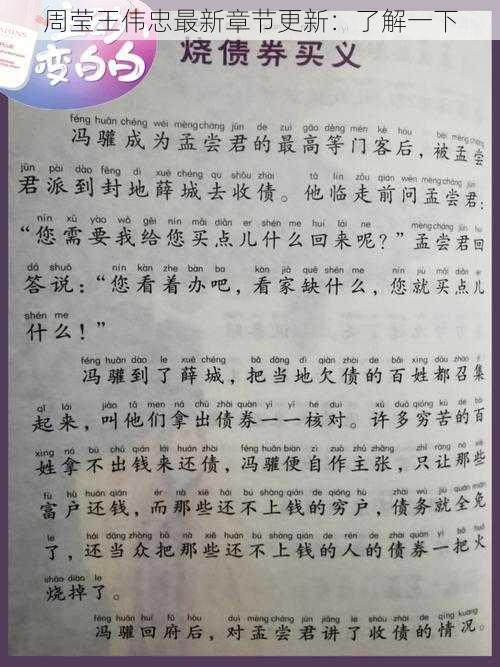 周莹王伟忠最新章节更新：了解一下
变白白
烧债券买义
féng huān chéng wéi mèng cháng jūn de zuì gāo děng mén kè hòu bèi mèng cháng
冯驩成为孟尝君的最高等门客后，被孟尝
jūn pài dào fēng dì xuē chéng qù shōu zhài tā lín zǒu qián wèn mèng cháng jūn
君派到封地薛城去收债。他临走前问孟尝君：
nín xū yào wǒ gěi nín mǎi diǎn er shén me huí lái ne mèng cháng jūn huí
“您需要我给您买点儿什么回来呢？”孟尝君回
dá shuō nín kàn zhe bàn ba kàn jiā quē shén me nín jiù mǎi diǎn er
答说：“您看着办吧，看家缺什么，您就买点儿
shén me
什么！”
féng huān dào le xuē chéng bǎ dāng dì qiàn zhài de bǎi xìng dōu zhào jí
冯驩到了薛城，把当地欠债的百姓都召集
qǐ lái jiào tā men ná chū zhài quàn yī yī hé duì xǔ duō qióng kǔ de bǎi
起来，叫他们拿出债券一一核对。许多穷苦的百
xìng ná bù chū qián lái huán zhài féng huān biàn zì zuò zhǔ zhāng zhǐ ràng nà xiē
姓拿不出钱来还债，冯驩便自作主张，只让那些
fù hù huán qián ér nà xiē huán bú shàng qián de qióng hù zhài wù jiù quán miǎn
富户还钱，而那些还不上钱的穷户，债务就全免
le hái dāng zhòng bǎ nà xiē huán bú shàng qián de rén de zhài quàn yì bǎ huǒ
了，还当众把那些还不上钱的人的债券一把火
shāo diào le
烧掉了。
féng huān huí fǔ hòu duì mèng cháng jūn jiǎng le shōu zhài de qíng kuàng
冯驩回府后，对孟尝君讲了收债的情况。